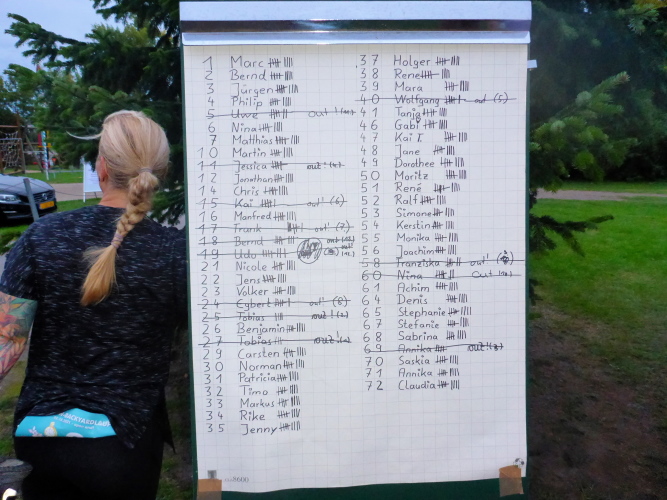 1 Marc
2 Bernd
3 Jürgen
4 Philip
5 Uwe out!
6 Nina
7 Matthias
10 Martin
11 Jessica out!
12 Jonathan
14 Chris
15 Kai out! (6)
16 Manfred
17 Frank out! (7)
18 Bernd out
19 Udo
21 Nicole
22 Jens
23 Volker
24 Egbert out! (6)
25 Tobias out!
26 Benjamin
27 Tobias out!
29 Carsten
30 Norman
31 Patricia
32 Timo
33 Markus
34 Rike
35 Jenny
37 Holger
38 Rene
39 Mara
40 Wolfgang out (5)
41 Tanja
46 Gabi
47 Kai I
48 Jane
49 Dorothee
50 Moritz
51 René
52 Ralf
53 Simone
54 Kerstin
55 Monika
56 Joachim
58 Franziska out!
60 Nina out
61 Achim
64 Denis
65 Stephanie
67 Stefanie
68 Sabrina
69 Annika out!
70 Saskia
71 Annika
72 Claudia